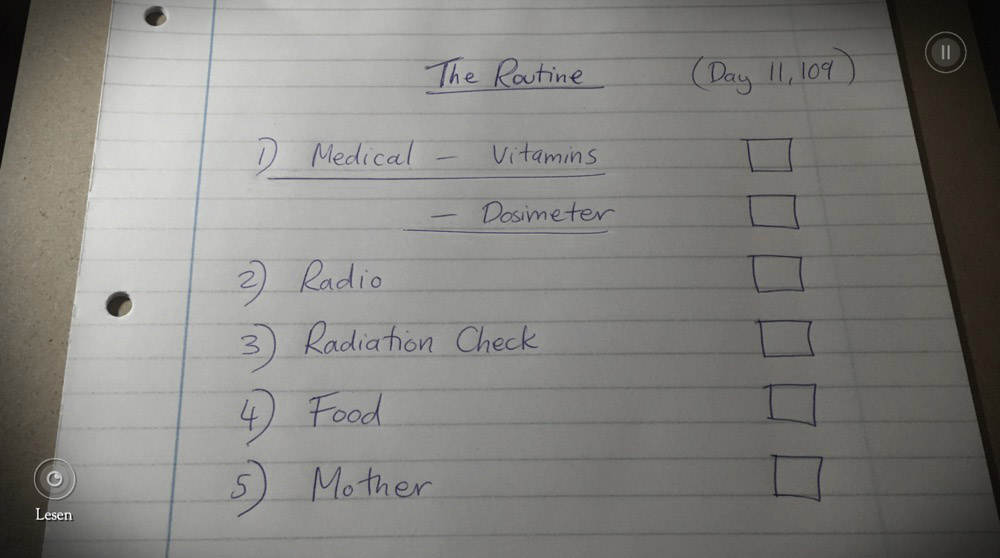 The Routine (Day 11,109)
1) Medical - Vitamins
- Dosimeter
2) Radio
3) Radiation Check
4) Food
5) Mother
Lesen